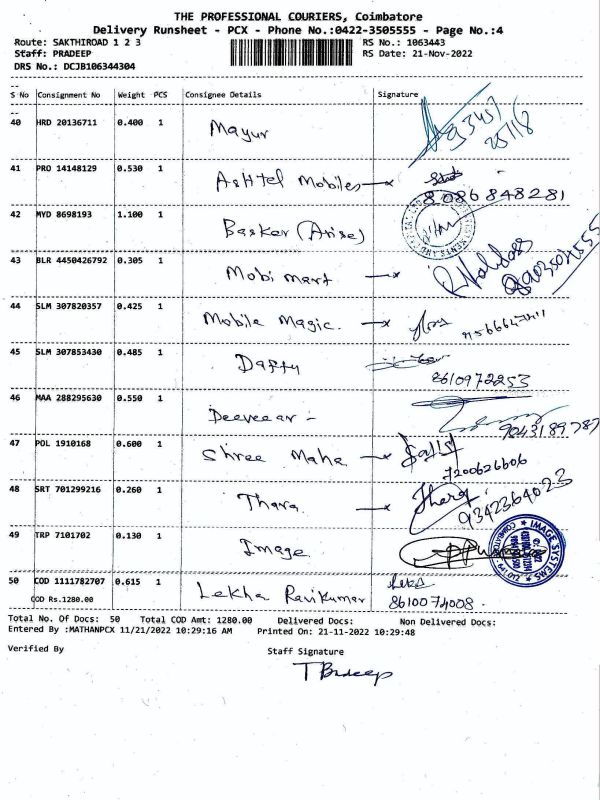 THE PROFESSIONAL COURIERS, Coimbatore
Delivery Runsheet - PCX - Phone No.:0422-3505555 - Page No.:4
Route: SAKTHIROAD 1 2 3 RS No.: 1063443
Staff: PRADEEP RS Date: 21-Nov-2022
DRS No.: DCJB106344304
S No Consignment No Weight PCS Consignee Details Signature
40 HRD 20136711 0.400 1 Mayur
41 PRO 14148129 0.530 1 Ashtel Mobiles 8086848281
42 MYD 8698193 1.100 1 Basker (Arise)
43 BLR 4450426792 0.305 1 Mobi mart
44 SLM 307820357 0.425 1 Mobile Magic.
45 SLM 307853430 0.485 1 Daffy 8610972253
46 MAA 288295630 0.550 1 Deeveear - 9043189787
47 POL 1910168 0.600 1 Shree Maha 7200626606
48 SRT 701299216 0.260 1 Thara 9342364023
49 TRP 7101702 0.130 1 Image IMAGE SYSTEMS
50 COD 1111782707 0.615 1 Lekha Ravikumar 8610074008.
COD Rs.1280.00
Total No. Of Docs: 50 Total COD Amt: 1280.00 Delivered Docs: Non Delivered Docs:
Entered By :MATHANPCX 11/21/2022 10:29:16 AM Printed On: 21-11-2022 10:29:48
Verified By Staff Signature